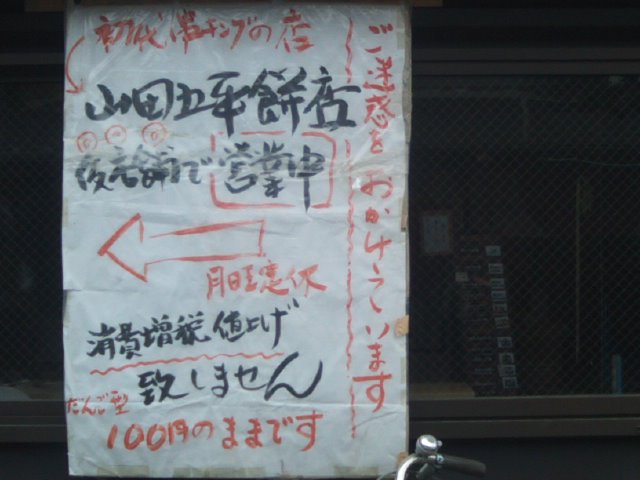 ご迷惑をおかけしています
初代串キングの店
山田五平餅店
仮店舗で営業中
月日定休
消費増税値上げ
致しません
だんご型
100円のままです